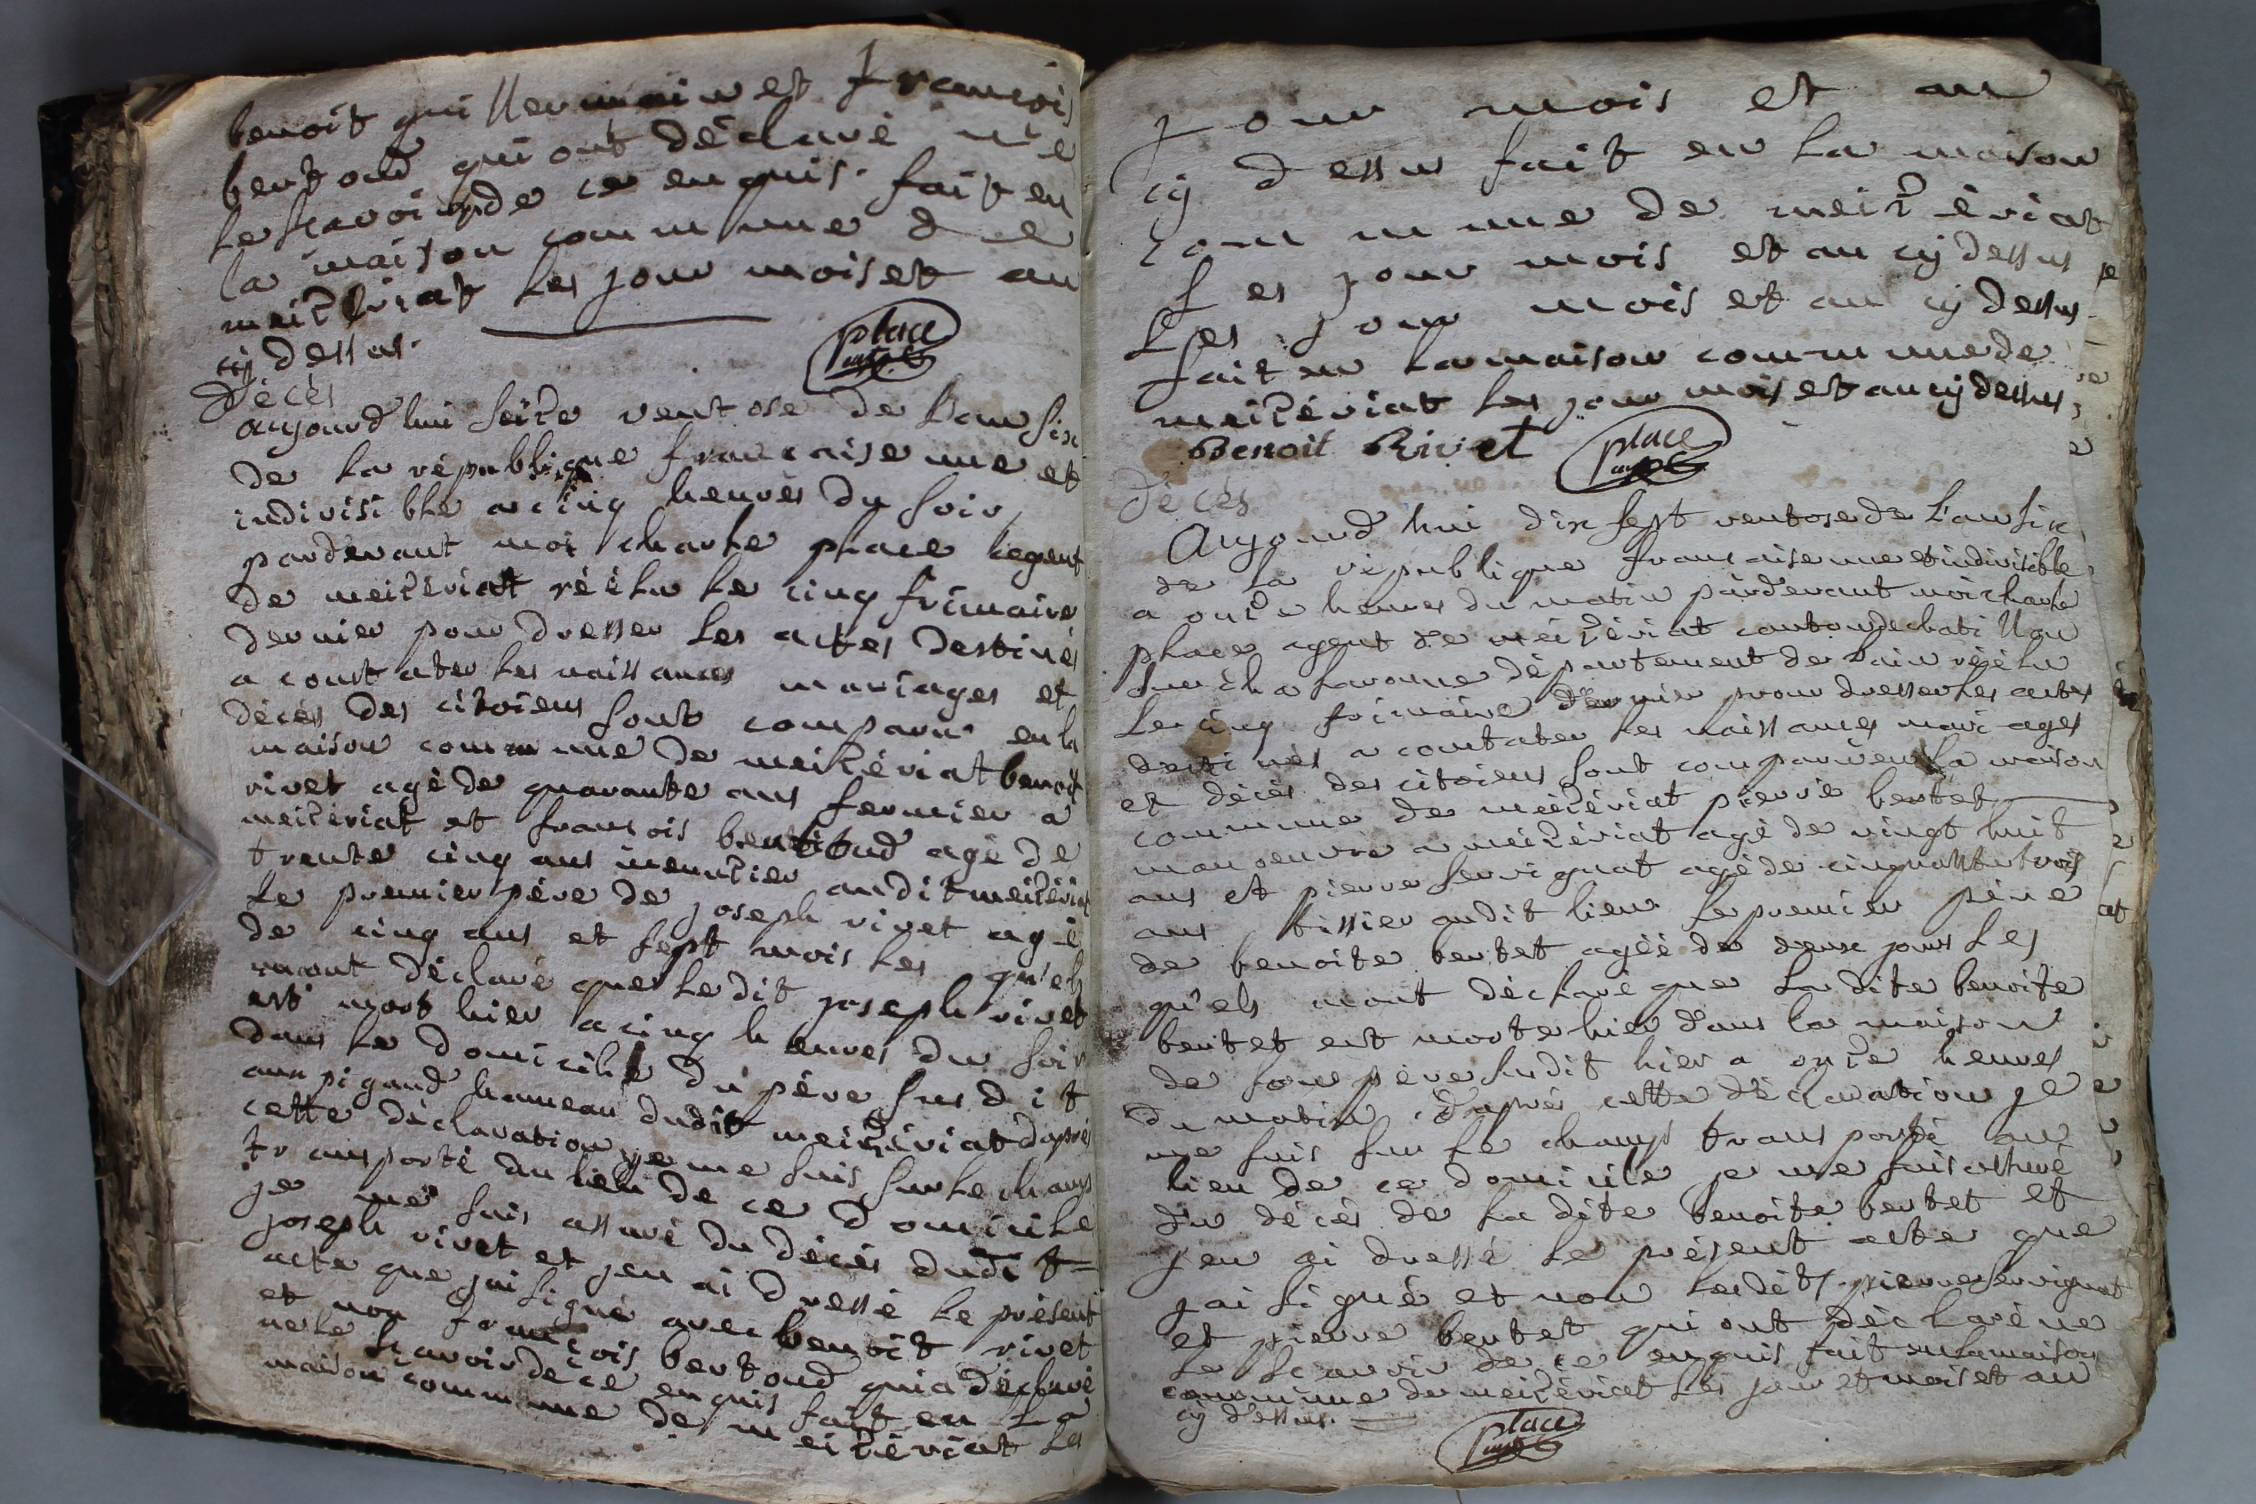 benoit guillermain et francois
bertoud qui ont déclaré ne
le scavoir de ce enquis. fait en
la maison commune de
meizériat les jour mois et an
cij dessus.
place
Décès
aujourd'hui seize ventose de l'an six
de la république francaise une et
indivisible a cinq heures du soir
pardevant moi charle place agent
de meizériat réélu le cinq frimaire
dernier pour dresser les actes destinés
a constater les naissances mariages et
décès des citoiens sont comparu en la
maison commune de meizériat benoit
rivet agé de quarante ans fermier a
meizériat et fransois bertoud agé de
trente cinq ans meunier audit meizériat
le premier père de joseph rivet agé
de cinq ans et sept mois les quels
mont déclaré que ledit joseph rivet
est mort hier a cinq heures du soir
dans le domicile du père susdit
aux pigaud hameau dudit meizériat d'après
cette déclaration je me suis sur le champs
transporté au lieu de ce domicile
je me suis assuré du décès dudit =
joseph rivet et jen ai dressé le présent
acte que jai signé avec benoit rivet
et non francois bertoud qui a déclaré
ne le scavoir de ce enquis fait en la
maison commune de meizériat les
jour mois et an
cij dessus fait en la maison
commune de meizériat
les jour mois et an cij dessus
les jour mois et an cij dessus.
fait en la maison commune de
meizériat les jour mois et an cij dessus
Benoit Rivet place
Décès
Aujourd'hui dix sept ventose de l'an six
de la république fransaise une et indivisible
a onze heures du matin pardevant moi charle
place agent de meizériat canton de chatillon
sur chalaronne département de lain réélu
le cinq frimaire dernier pour dresser les actes
destinés a contater les naissances mariages
et décès des citoiens sont comparu en la maison
commune de meizériat pierre bertet
manoeuvre a meizériat agé de vingt huit
ans et pierre servignat agé de cinquante trois
ans tissier audit lieu le premier père
de benoite bertet agéé de deux jours les
quels mont déclaré que la dite benoite
bertet est morte hier dans la maison
de son père susdit hier a onze heures
du matin d'après cette déclaration je
me suis sur le champs transporté au
lieu de ce domicile je me suis assuré
du décès de la dite benoite bertet et
jen ai dressé le présent acte que
jai signé et non lesdits pierre servignat
et pierre bertet qui ont déclaré ne
le scavoir de ce enquis fait en la maison
commune de meizériat les jour et mois et an
cij dessus.
place